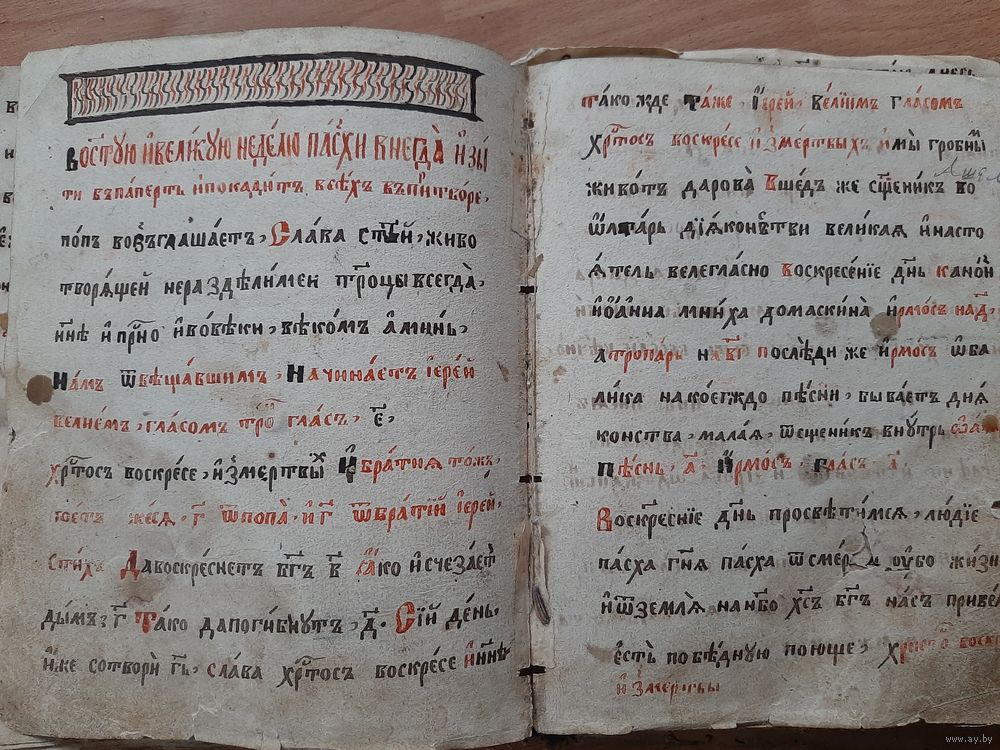 востꙋю ивеликꙋю неделю пасхи внегда изы
ти въпаперть ипокадитъ всѣхъ въпритворе,
попъ возъглашаетъ, Слава стѣй, живо
творящей нераздѣлимей троцы всегда,
ннѣ ипрно ивовѣки, вѣкомъ аминь,
Намъ ѿвѣщавшимъ, Начинаетъ іерей
велиемъ, гласомъ тро гласъ, є҃,
хртосъ воскресе, измертвы Ибратия тожъ,
жеся, г҃ ѿпопа, иг҃ ѿбратій іерей,
стихъ Давоскреснетъ бгъ в҃ Яко исчезаетъ
дымъ, г҃ Тако дапогибнутъ, д҃. Сій день,
иже сотвори гь, слава хртосъ воскресе иннѣ
такожде таже, Іерей, веліимъ гласомъ
Хртосъ воскресе измертвыхъ имы гробны
животъ дарова Вшедъ же сщеникъ во
ѿлтарь діяконѣтви великая инасто
ятель велегласно воскресеніе днь канон
иоанна мниха домаскина ирмосъ над,
атропарь нхв҃і послѣди же ирмосъ ѡба
лика накоегждо пѣсни, бываетъ дия
конства, малая, ѿсщеникъ внутрь
пѣснь, а҃ Ирмосъ, гласъ а҃
Воскресніе днь просвѣтимся, людіе
пасха гня пасха ѿсмер оубо жизн
иѿземля нанбо хсъ бгъ насъ привел
есть побѣдную поюще, христо воск
измертвы
www.ay.by